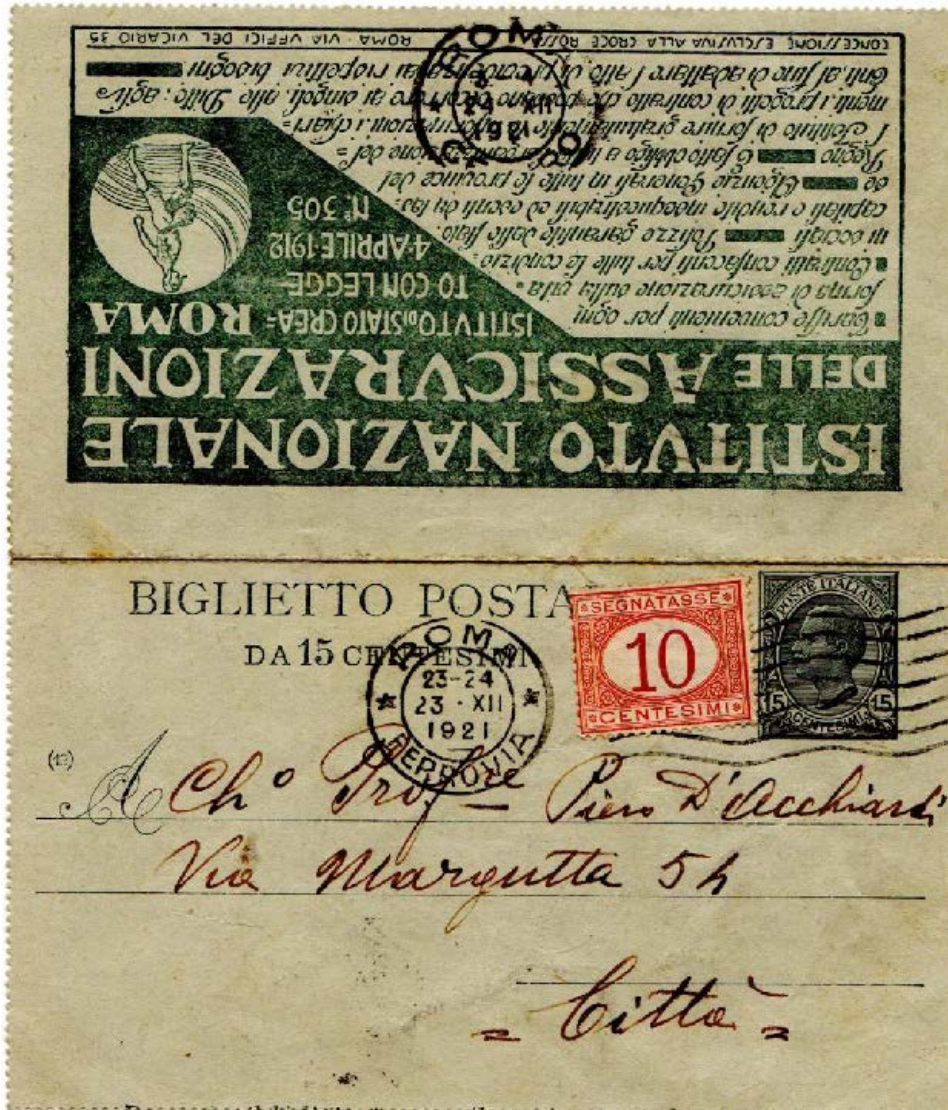 ISTITVTO NAZIONALE
DELLE ASSICVRAZIONI
ROMA
ISTITVTO DI STATO CREA=
TO CON LEGGE
4·APRILE·1912
N° 305
Tariffe convenienti per ogni
forma di assicurazione sulla vita.
Contratti confacenti per tutte le condizio=
ni sociali Polizze garantite dallo stato,
capitali e rendite insequestrabili ed esenti da tas=
se Agenzie Generali in tutte le province del
Regno È fatto obbligo a
l'Istituto di fornire gratuitamente informazioni, i chiari=
menti, i progetti di contratto che possono occorrere ai singoli, alle Ditte, agli
Enti, al fine di adattare l'atto di previdenza ai rispettivi bisogni
CONCESSIONE ESCLVSIVA ALLA CROCE ROSSA ROMA · VIA VFFICI DEL VICARIO 35
ROM
XII
1921
BIGLIETTO POSTA
DA 15 CENTESIMI
SEGNATASSE
10
CENTESIMI
POSTE ITALIANE
15 15
CENTESIMI
ROMA
23-24
23 · XII
1921
FERROVIA
(13)
A Ch° Prof.re Piero D'Acchiardi
Via Margutta 54
= Città =